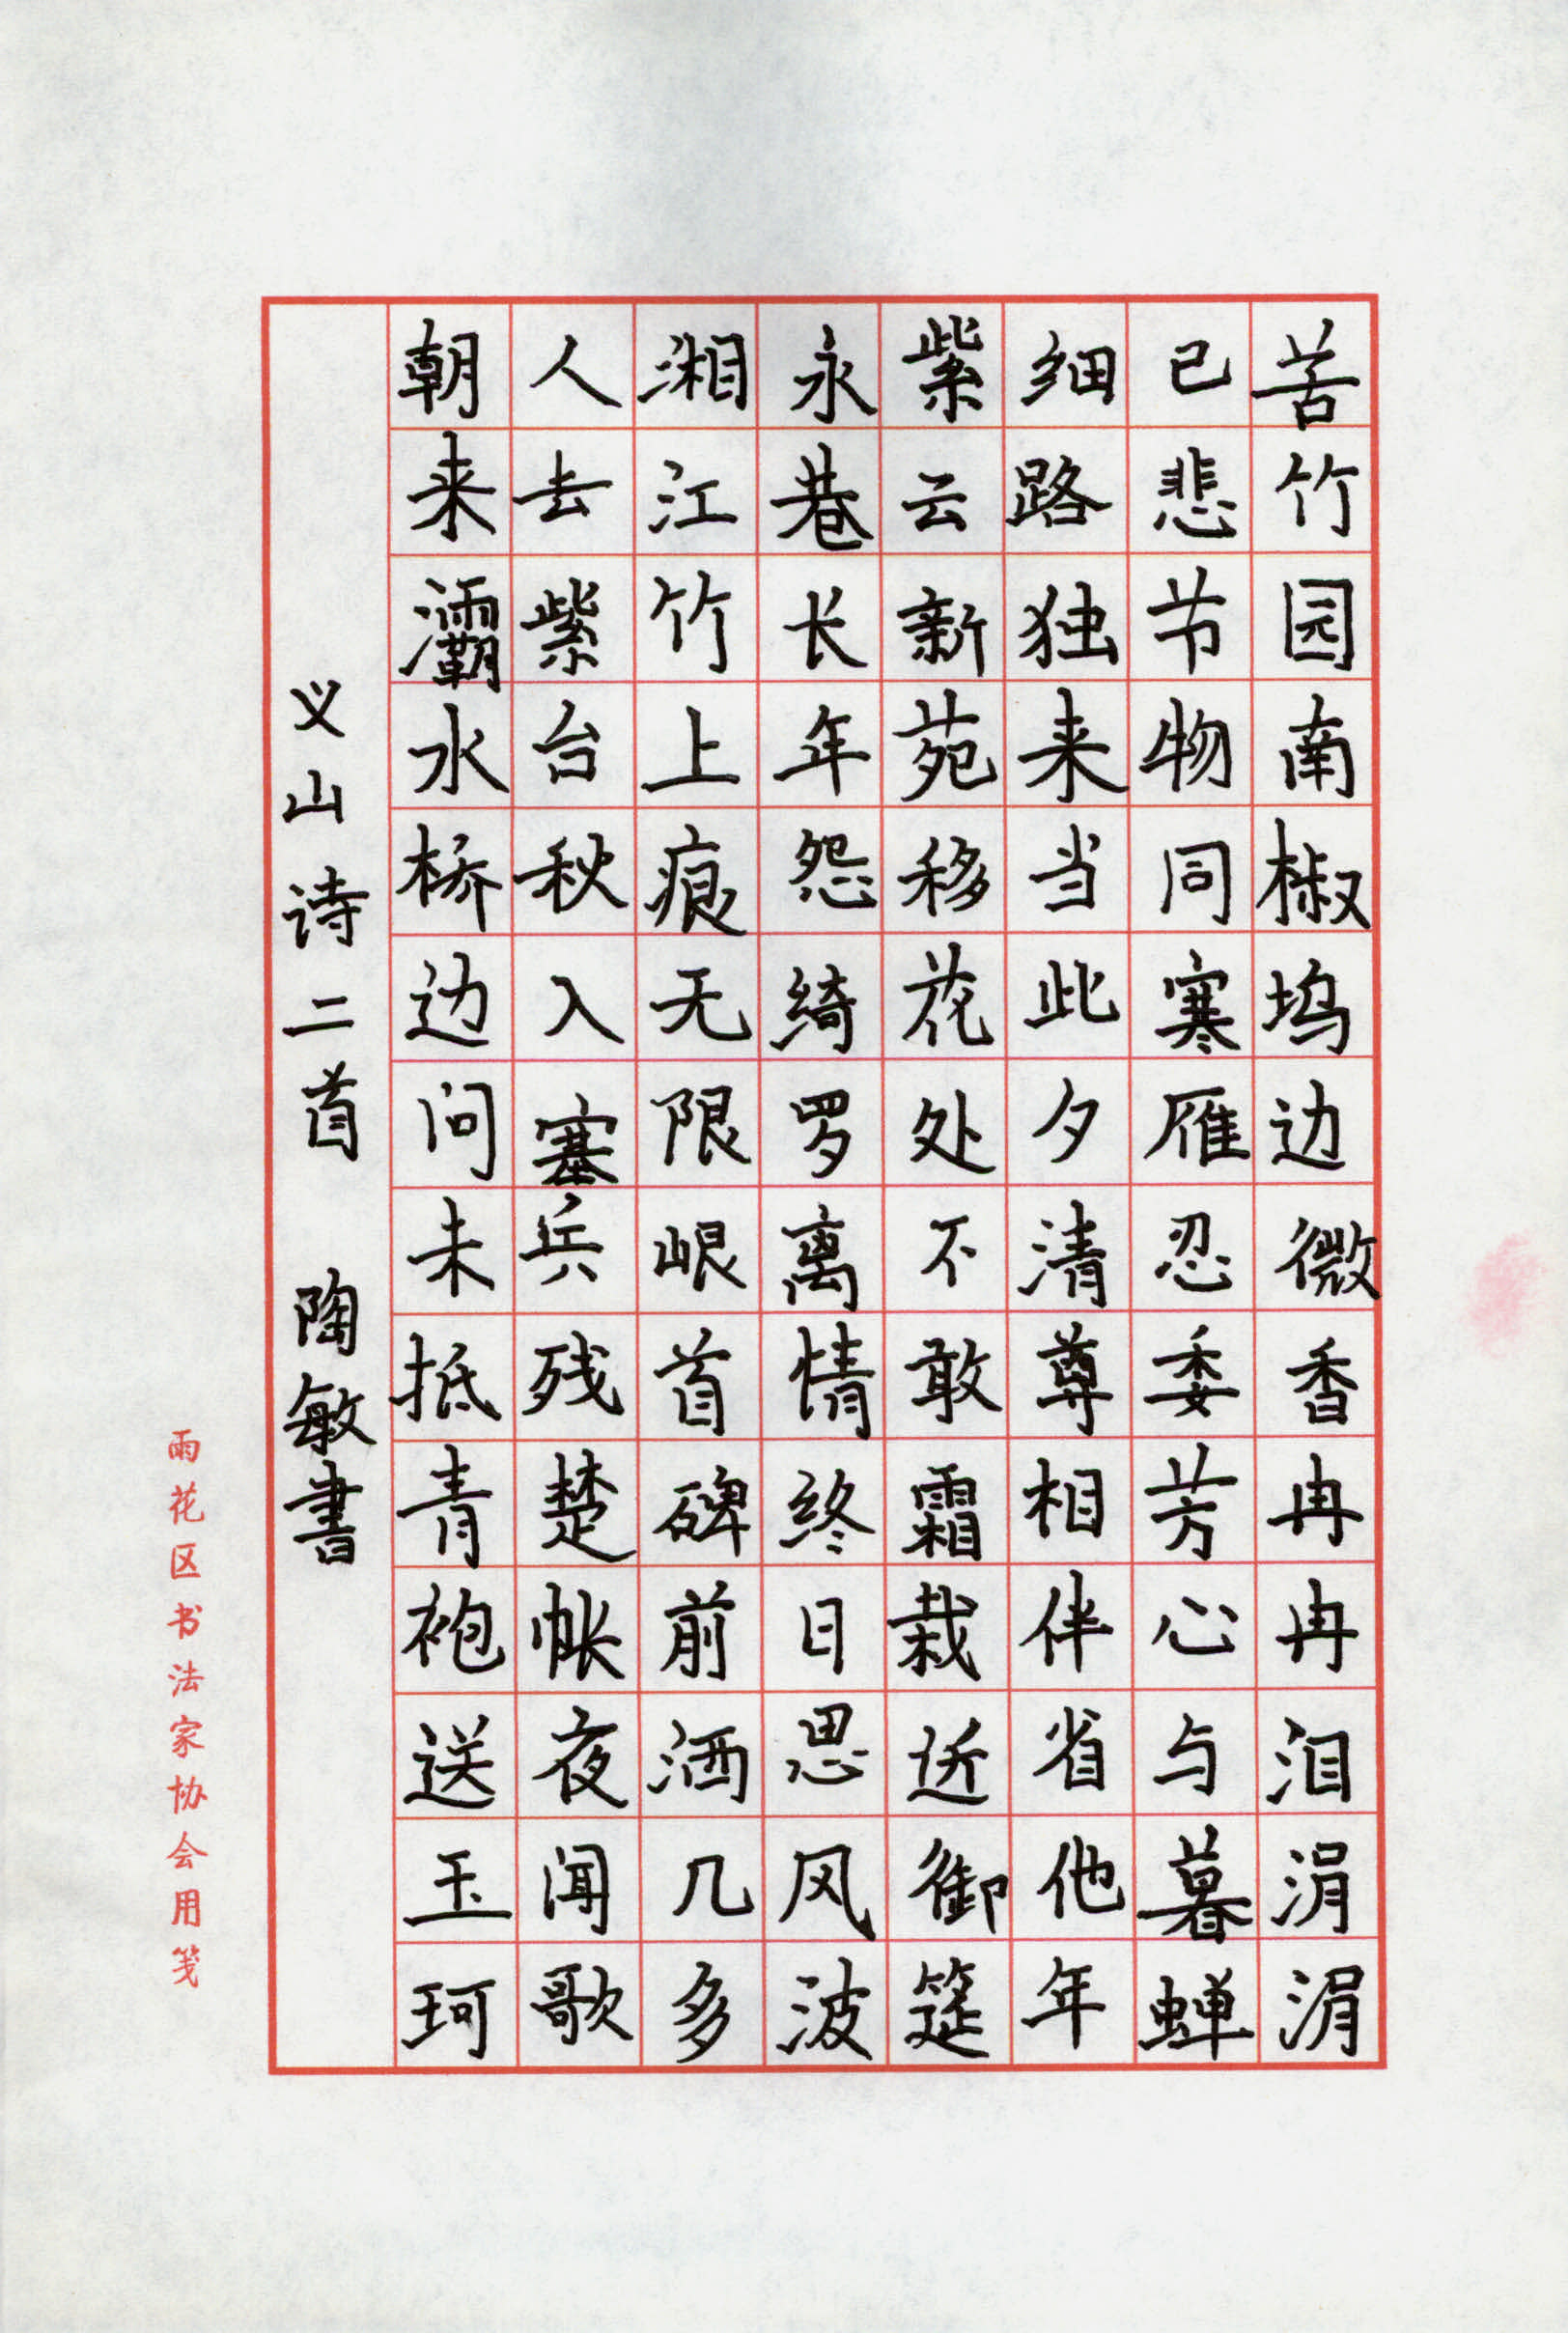 苦竹园南椒坞边微香冉冉泪涓涓
已悲节物同寒雁忍委芳心与暮蝉
细路独来当此夕清尊相伴省他年
紫云新苑移花处不敢霜栽近御筵
永巷长年怨绮罗离情终日思风波
湘江竹上痕无限岘首碑前洒几多
人去紫台秋入塞兵残楚帐夜闻歌
朝来灞水桥边问未抵青袍送玉珂
义山诗二首 陶敏書
雨花区书法家协会用笺